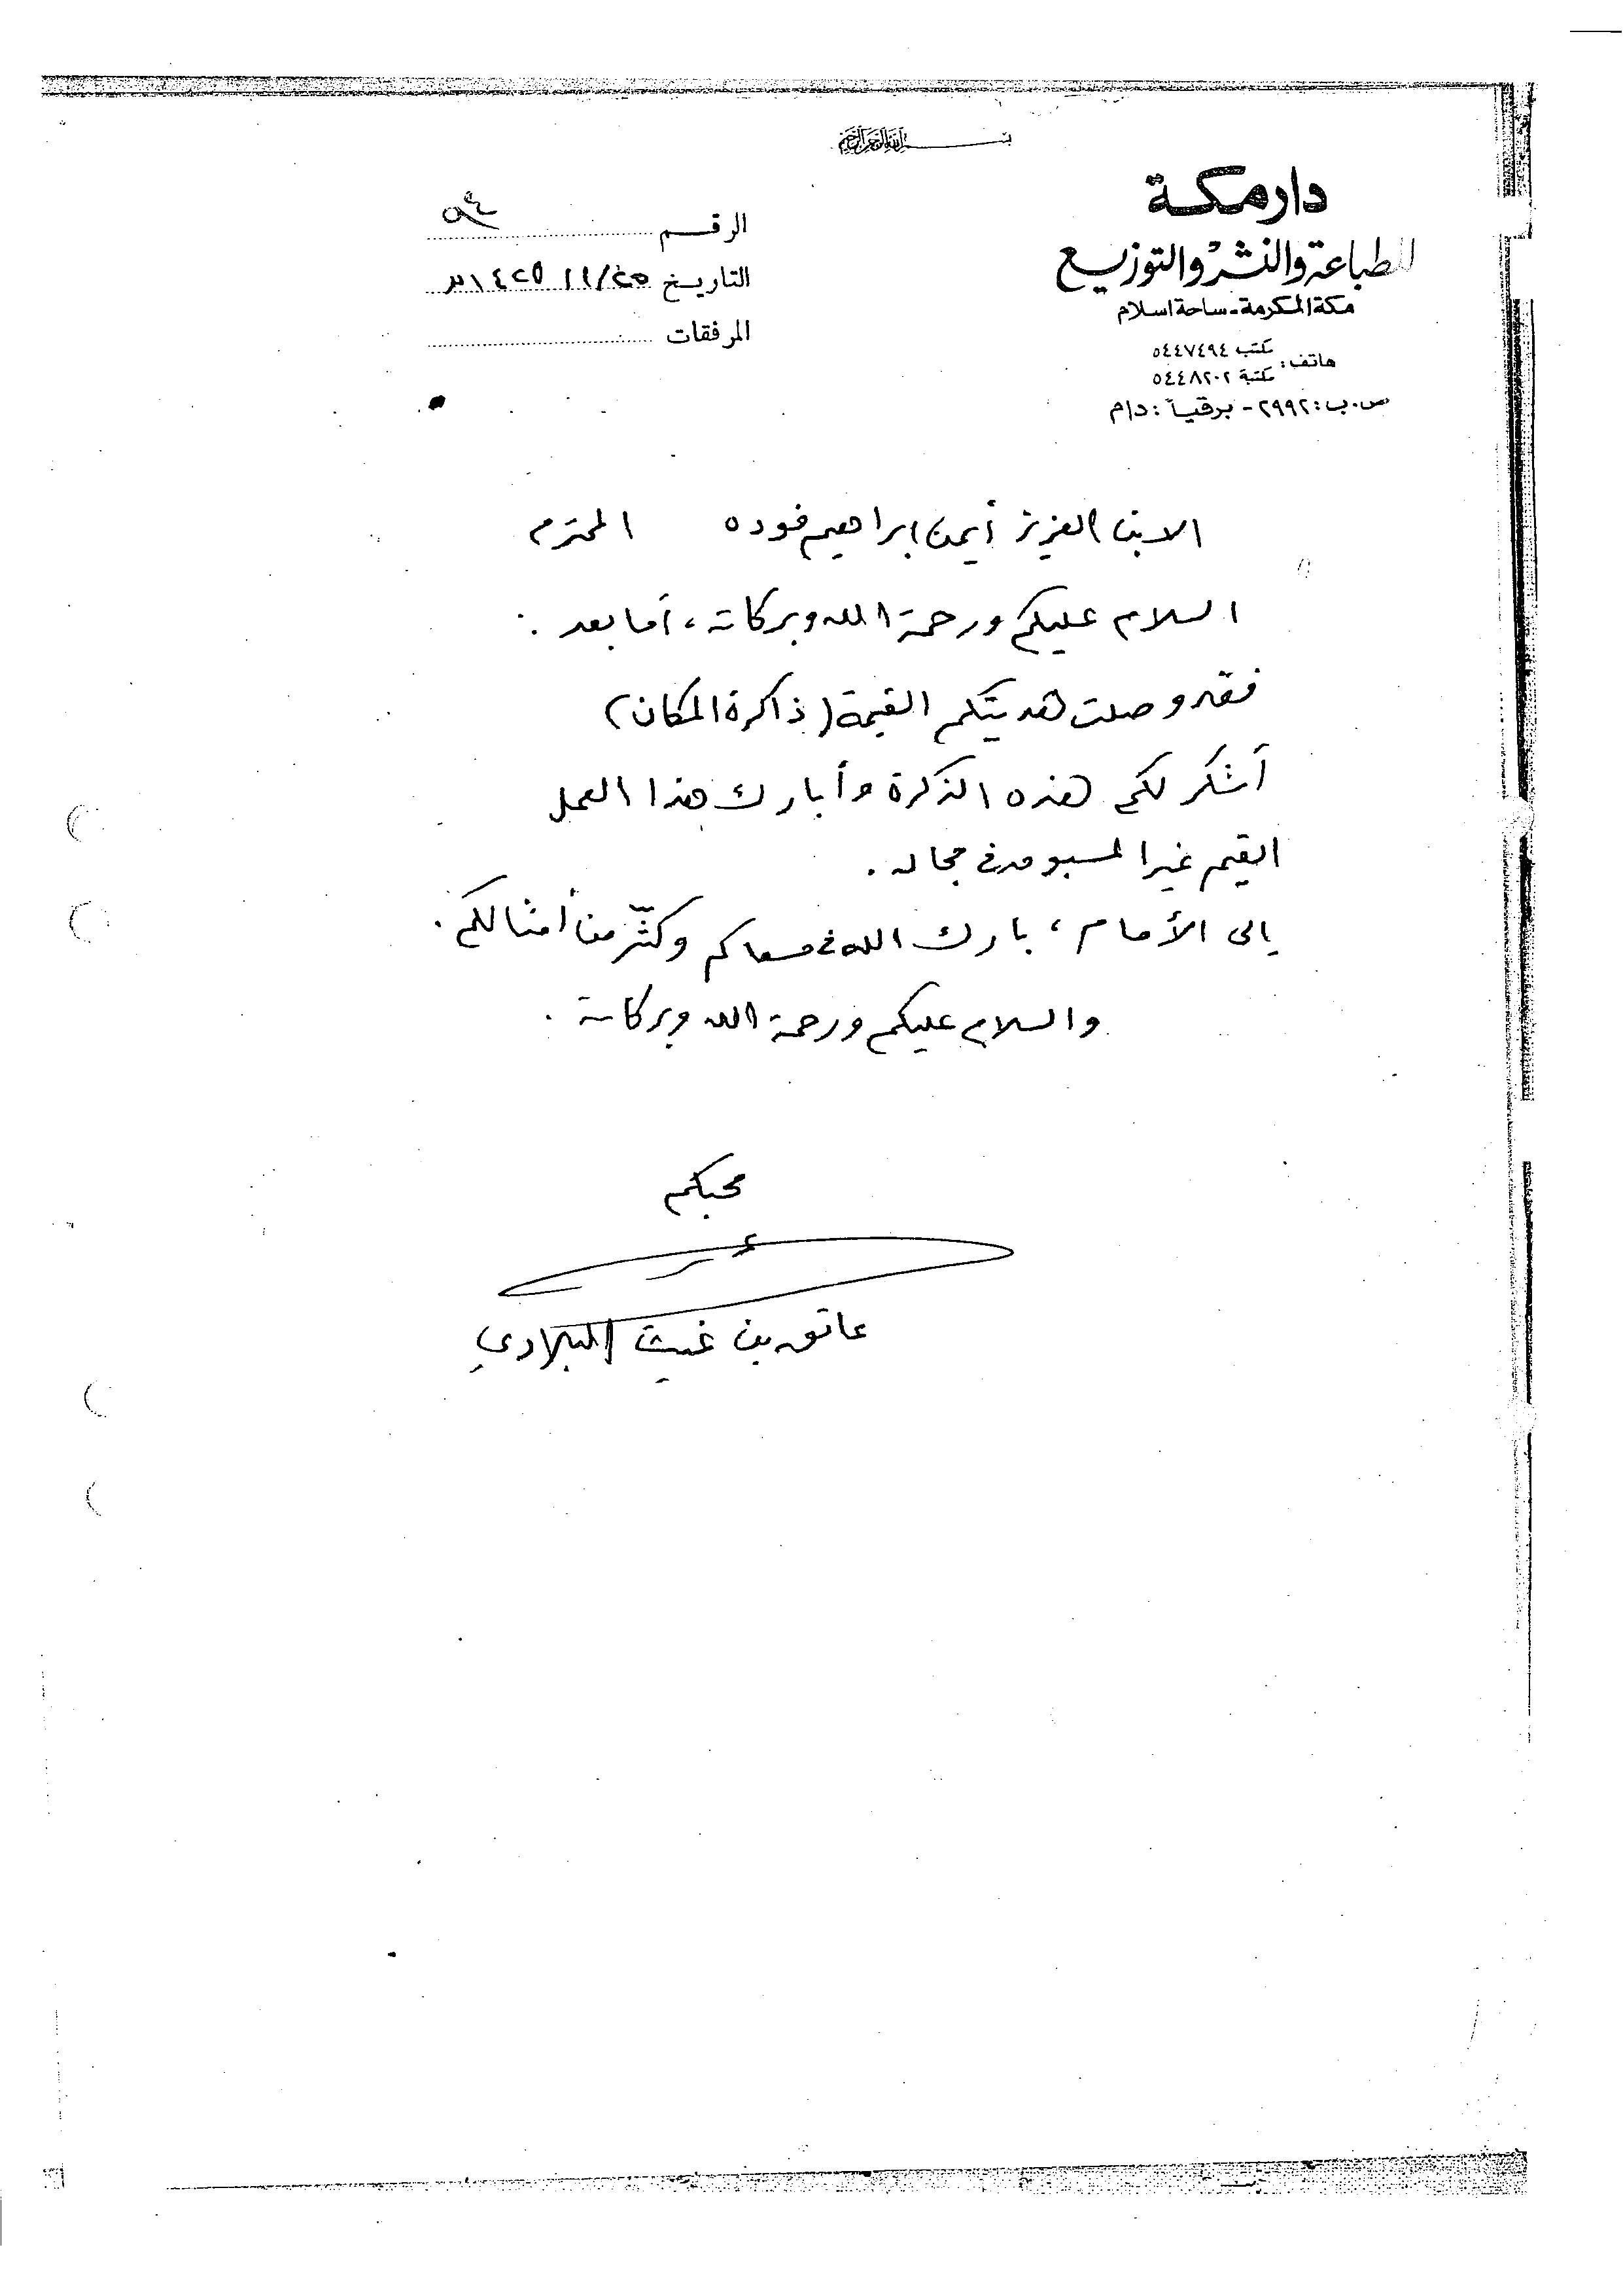 بسم الله الرحمن الرحيم
دار مكة
للطباعة والنشر والتوزيع
مكة المكرمة - ساحة اسلام
هاتف: مكتب ٥٤٤٧٤٩٤
مكتبة ٥٤٤٨٢٠٢
ص.ب: ٢٩٩٢ - برقياً: دام
الرقم
التاريخ ٢٥/ ١١ ١٤٢٥
المرفقات
الابن العزيز أيمن ابراهيم فوده المحترم
السلام عليكم ورحمة الله وبركاته، أما بعد:
فقد وصلت هديتكم القيمة (ذاكرة المكان)
أشكر لكم هذه الذكرة وأبارك هذا العمل
القيم غير المسبوق في مجاله.
إلى الأمام، بارك الله في مسعاكم وكثّر من أمثالكم.
والسلام عليكم ورحمة الله وبركاته.
محبكم
عاتق بن غيث البلادي